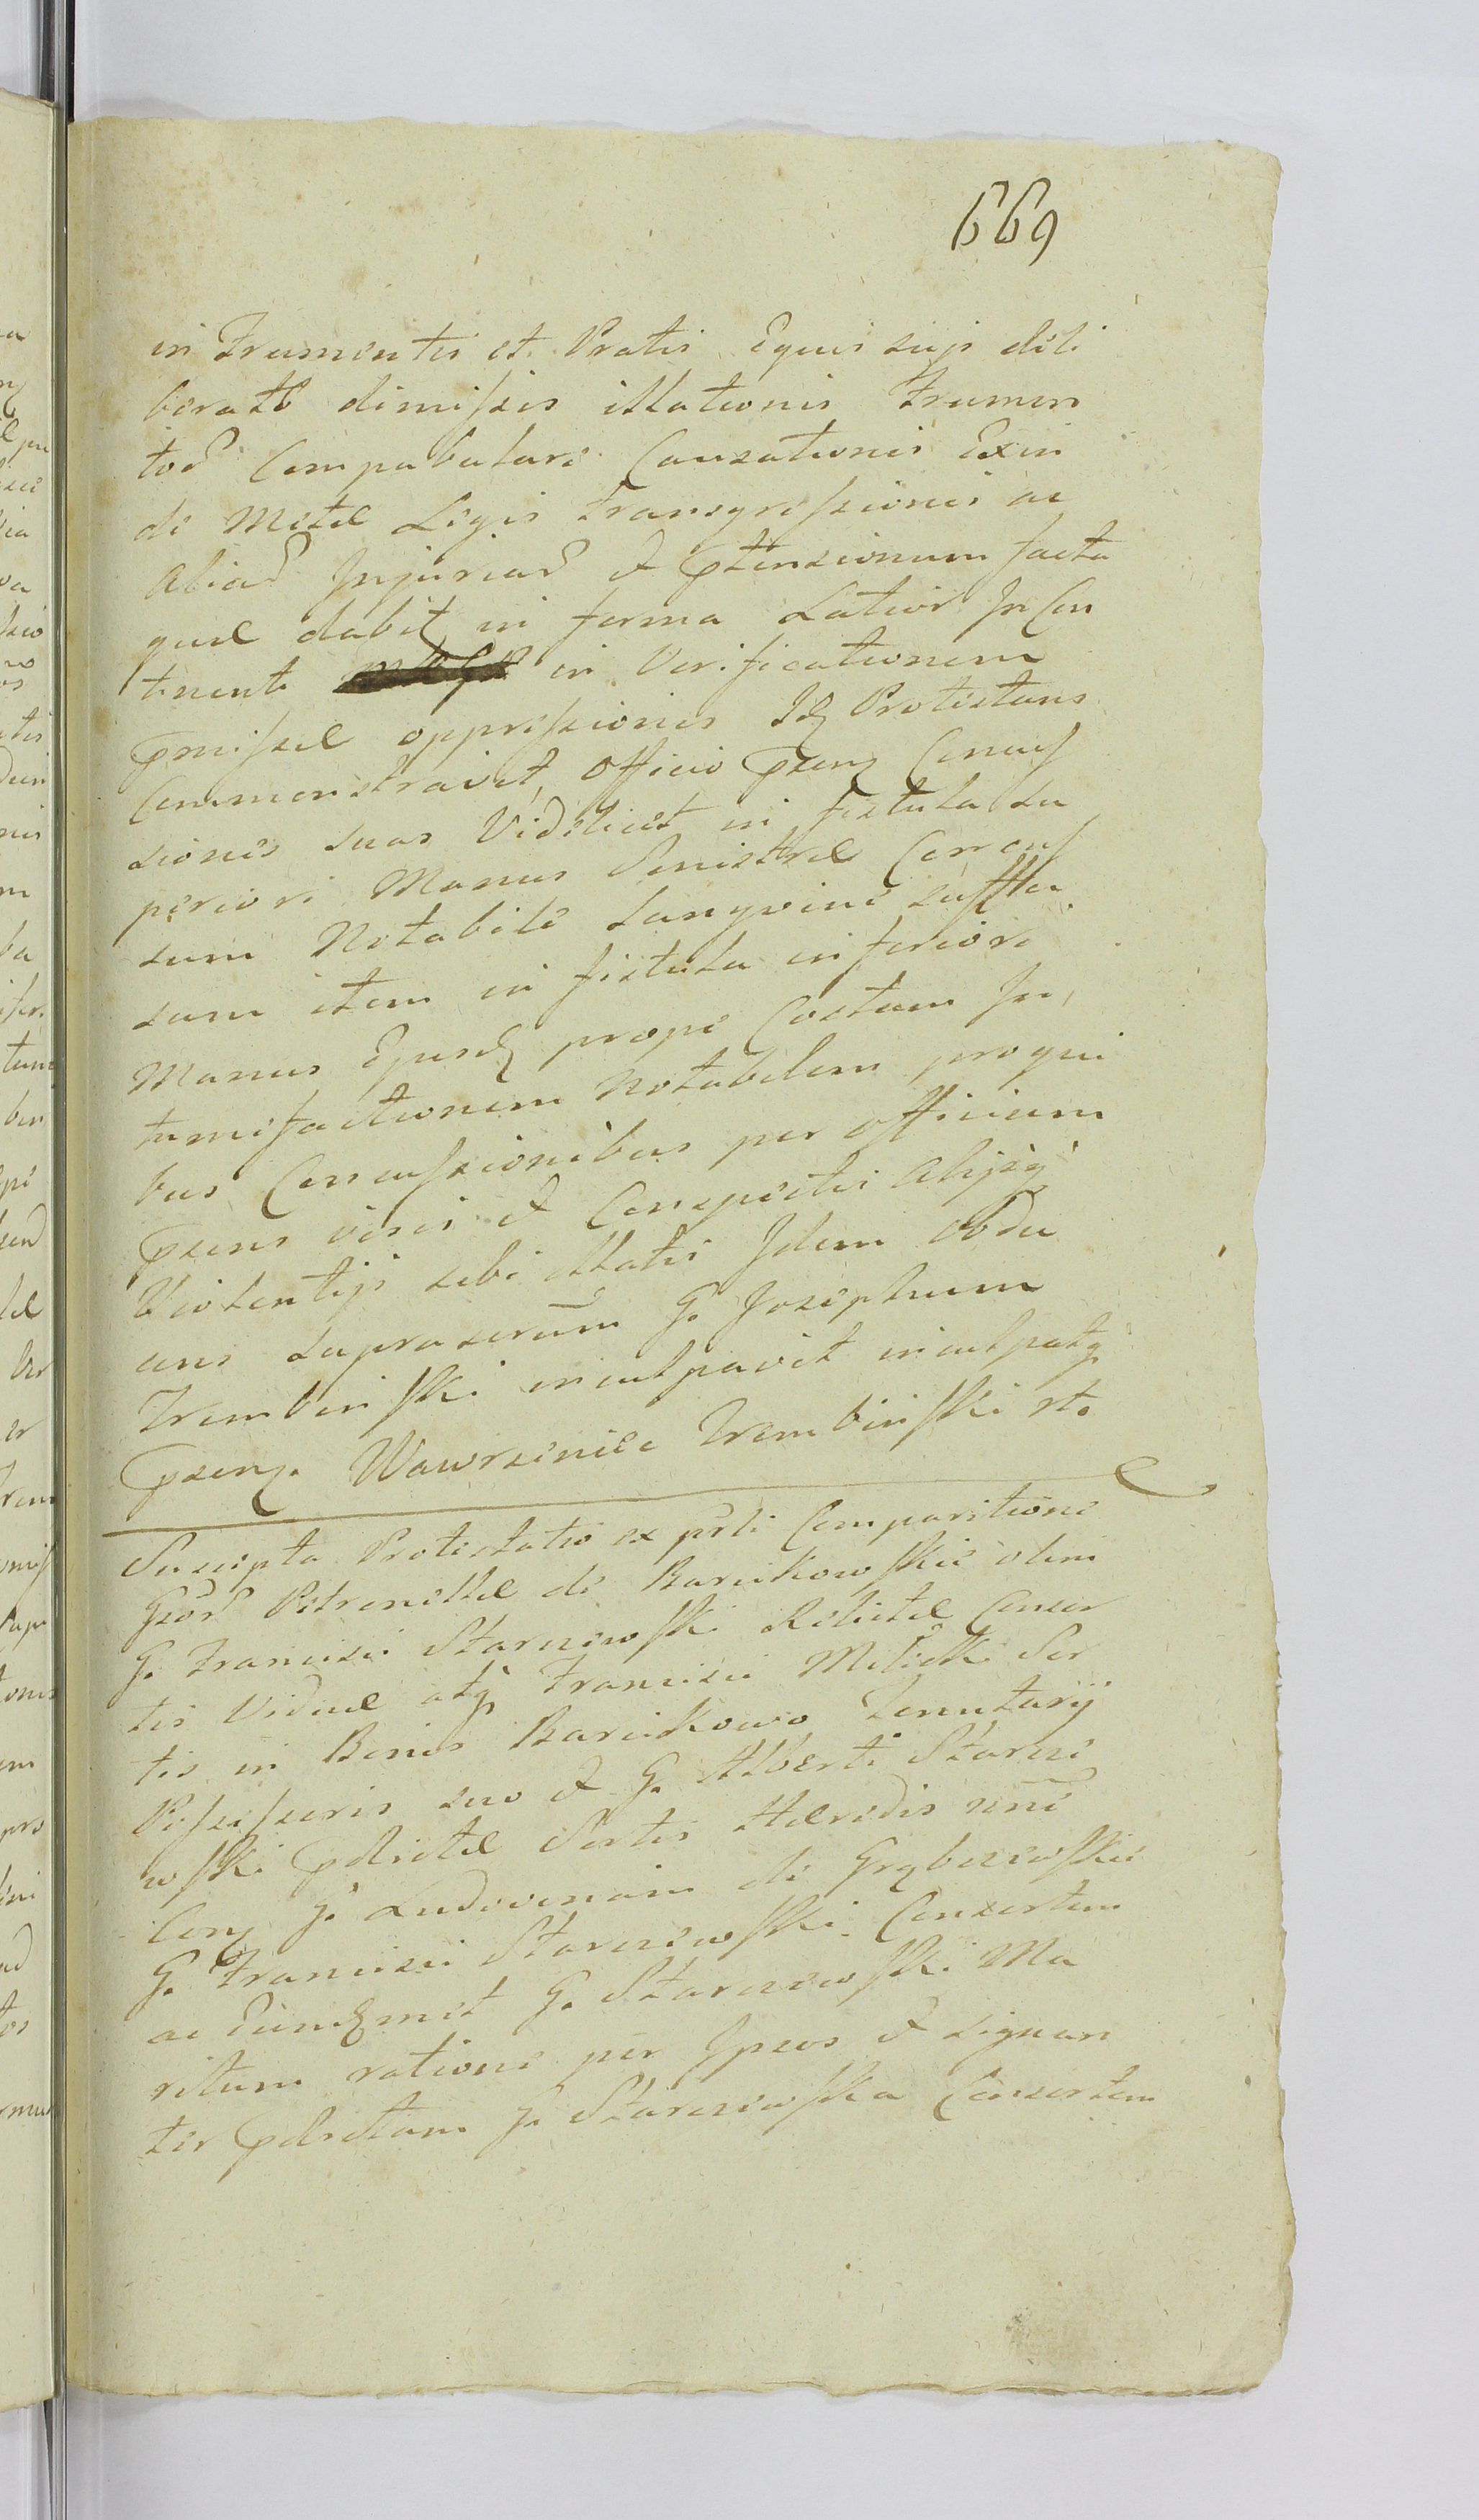 669
in Frumentis et Pratis Equis suis deli
berate dimissis illationis Frumen
tor Compabulare Causationis Exin
de Metæ Legis transgressionis ac
aliar Injuriar & Ptensionum facta
quæ dabit in forma Latiori In Con
tinenti in Verificationem
Pmissæ oppressionis Idq Protestans
Commonstravit, Officio Psenq Concus
siones suas Videlicet in fistula su
periori Manus Sinistræ Concus
sum Notabile Sangvine suffu
sum item in fistula inferiori
Manus Ejusdq prope Costam In
tumefactionem Notabilem pro qui
bus Concussionibus per Officium
Psens visis & Conspectis alijsq
Violentijs sibi illatis Idem Obdu
cens suprascrum G. Josephum
Trembinski inculpavit inculpatq
Psenq. Wawrzeniec Trembinski sto
Suscepta Protestatio ex prti Comparitione
Gsor Petronellæ de Barcikowskie olim
G. Francisci Starczewski Relictæ Consor
tis Viduæ atq Francisci Milecki Sor
tis in Bonis Barcikowo Tenutarij
Possessoris suo & G. Alberti Starcze
wski Pdictæ Sortis Hæredis nne
Conq G. Ludovicam de Grębczewskie
G. Francisci Starczewski Consortem
ac Eundqmet G. Starczewski Ma
ritum ratione per Ipsos & signan
ter Pdictam G. Starczewska Consortem